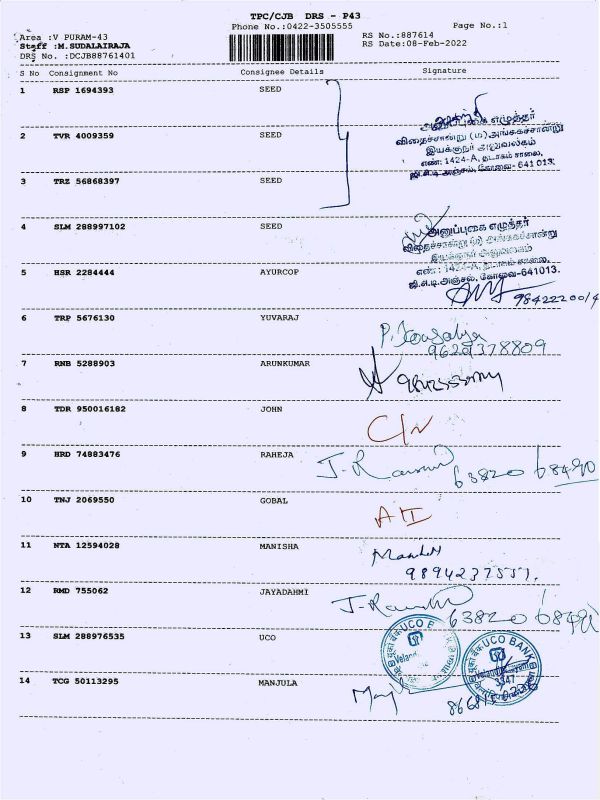 TPC/CJB DRS - P43
Phone No.:0422-3505555
Page No.:1
Area :V PURAM-43
RS No.:887614
Staff :M.SUDALAIRAJA
RS Date:08-Feb-2022
DRS No. :DCJB88761401
S No Consignment No Consignee Details Signature
1 RSP 1694393 SEED
அனுப்புகை எழுத்தர்
2 TVR 4009359 SEED
விதைச்சான்று (ம) அங்ககச்சான்று
இயக்குநர் அலுவலகம்
எண்: 1424-A, தடாகம் சாலை,
ஜி.சி.டி அஞ்சல், கோவை - 641 013.
3 TRZ 56868397 SEED
4 SLM 288997102 SEED
அனுப்புகை எழுத்தர்
விதைச்சான்று (ம) அங்ககச்சான்று
இயக்குநர் அலுவலகம்
5 HSR 2284444 AYURCOP
எண்: 1424-A, தடாகம் சாலை,
ஜி.சி.டி.அஞ்சல், கோவை-641013.
6 TRP 5676130 YUVARAJ
P. Kousalya
9629378809
7 RNB 5288903 ARUNKUMAR
8 TDR 950016182 JOHN
C/N
9 HRD 74883476 RAHEJA
63820 68490
10 TNJ 2069550 GOBAL
11 NTA 12594028 MANISHA
12 RMD 755062 JAYADAHMI
63820 68490
13 SLM 288976535 UCO
UCO BANK
14 TCG 50113295 MANJULA